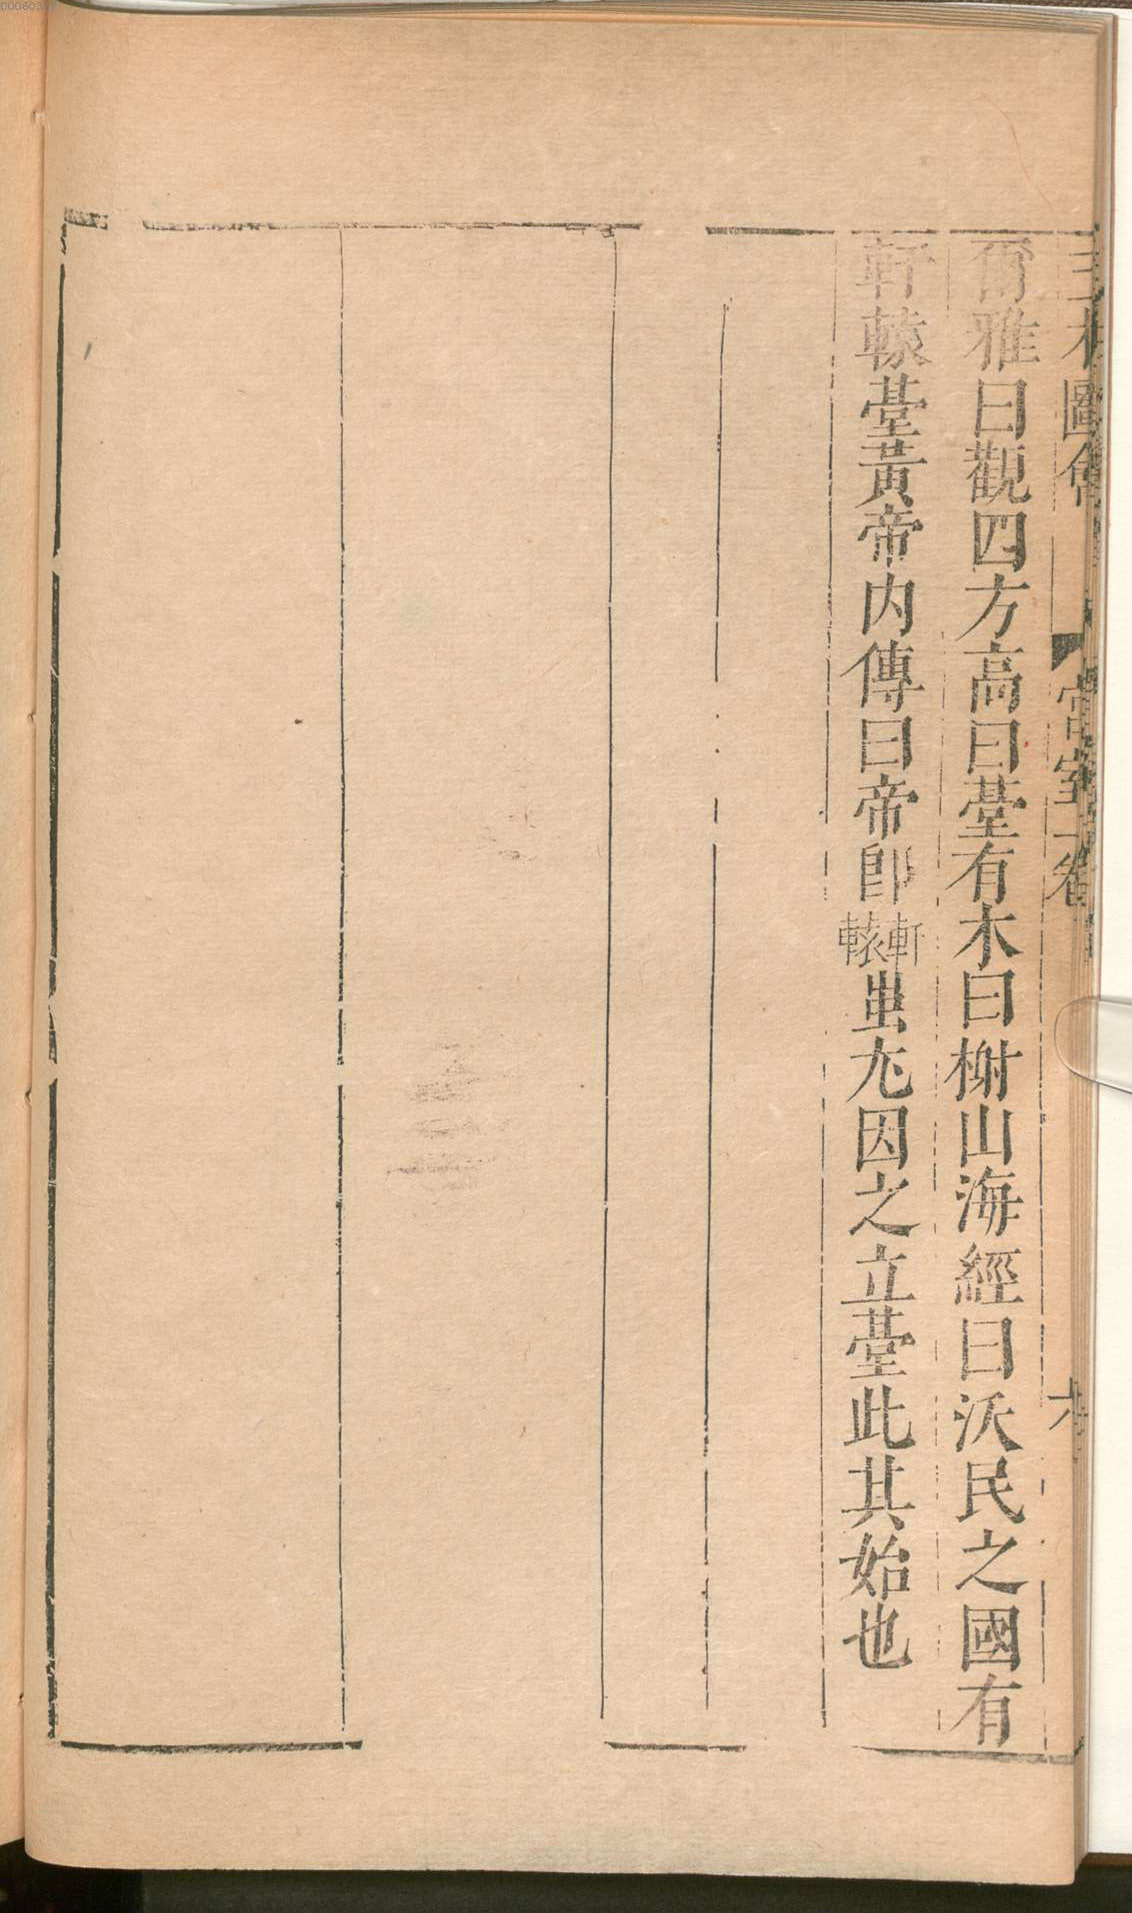 三才圖會 宮室一卷 六
爾雅曰觀四方高曰臺有木曰榭山海經曰沃民之國有
軒轅臺黃帝内傳曰帝卽軒轅蚩尤因之立臺此其始也